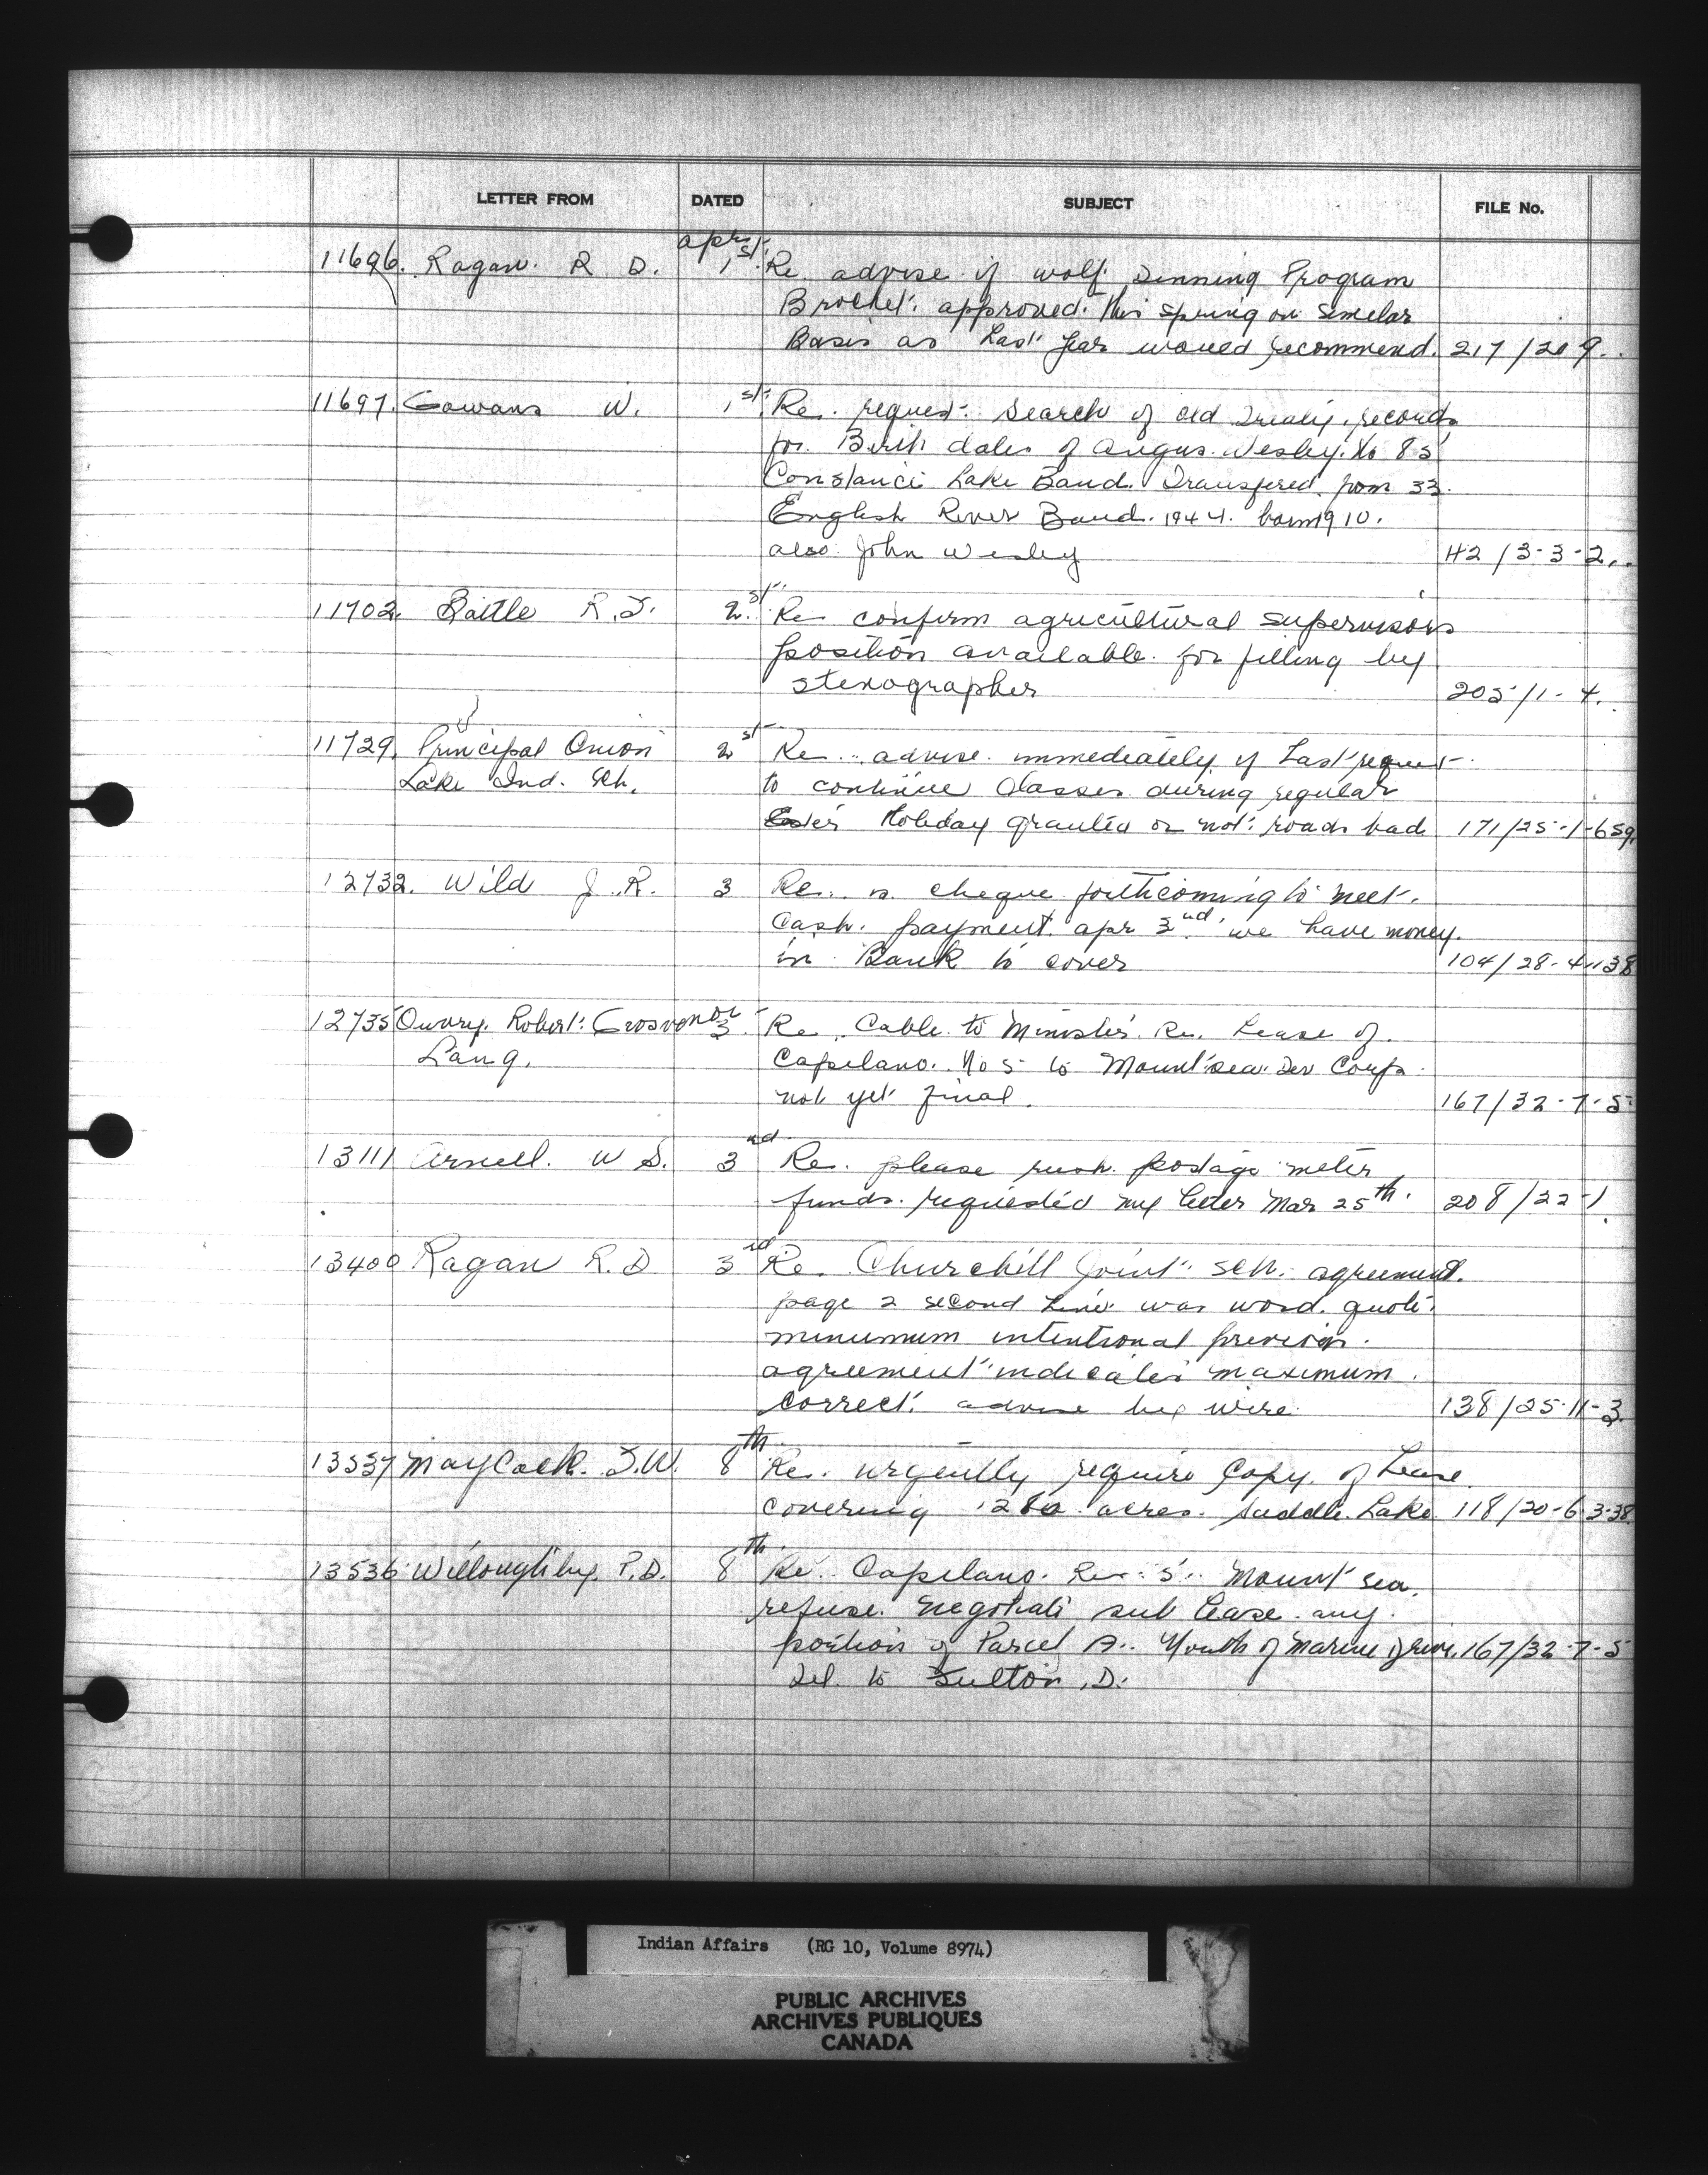 LETTER FROM DATED SUBJECT FILE No.
11696. Ragan. R D. apr. 1st. Re advise if wolf Denning Program
Brochet. approved. this spring on similar
Basis as Last year would recommend. 217/20 9..
11697. Gowans W. 1st. Re. request. Search of old Treaty. records
for. Birth dates of Angus. Wesley. No 85
Constance Lake Band. Transfered. from 33.
English River Band. 1944. born 1910.
also John Wesley 42/3-3-2..
11702. Battle R.F. 2.st. Re confirm agricultural supervisors
position available. for filling by
stenographer 205/1-4.
11729. Principal Onion 2st Re... advise. immediately. if Last request
Lake Ind. Sch. to continue Classes during regular
Easter Holiday granted or not. roads bad 171/25-1-659.
12732. Wild J. R. 3 Re.. is cheque forthcoming to meet.
Cash. payment. apr 3nd. we have money.
in Bank to cover 104/28-4-138
12735 Ouvry. Robert. Grosvenor 3. Re. Cable to Minister. Re. Lease of.
Lang. Capilano. No 5 to Mount sea. Dev Corp.
not yet final. 167/32-7-5.
13111 Arnell. W S. 3nd. Re. please rush. postage meter
funds. requested my letter Mar 25th. 208/22-1.
13400 Ragan R. D 3rd Re. Churchill Joint. Sch. agreement.
page 2 second Line was word. quote.
minumum intentional previous.
agreement indicates maximum.
correct. advise by wire. 138/25-11-3.
13537 May Cock. T.W. 8th. Re. urgently require Copy. of Lease.
covering 1280 acres. Saddle. Lake. 118/20-6-3-38.
13536 Willoughby. P.D. 8th. Re.. Capilano. Res. 5.. Mount sea.
refuse. negotiate sub Lease. any.
portion of Parcel A.. North of Marine Drive. 167/32-7-5
Tel. to Fulton. D.
Indian Affairs (RG 10, Volume 8974)
PUBLIC ARCHIVES
ARCHIVES PUBLIQUES
CANADA